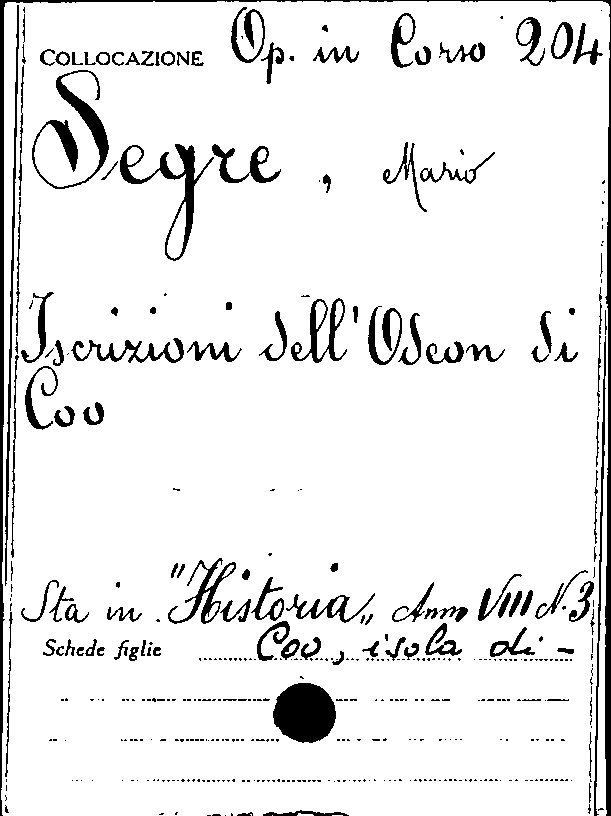 COLLOCAZIONE Op. in Corso 204
Segre, Mario
Iscrizioni dell'Odeon di
Coo
Sta in "Historia„ Anno VIII N. 3
Schede figlie Coo, isola di -